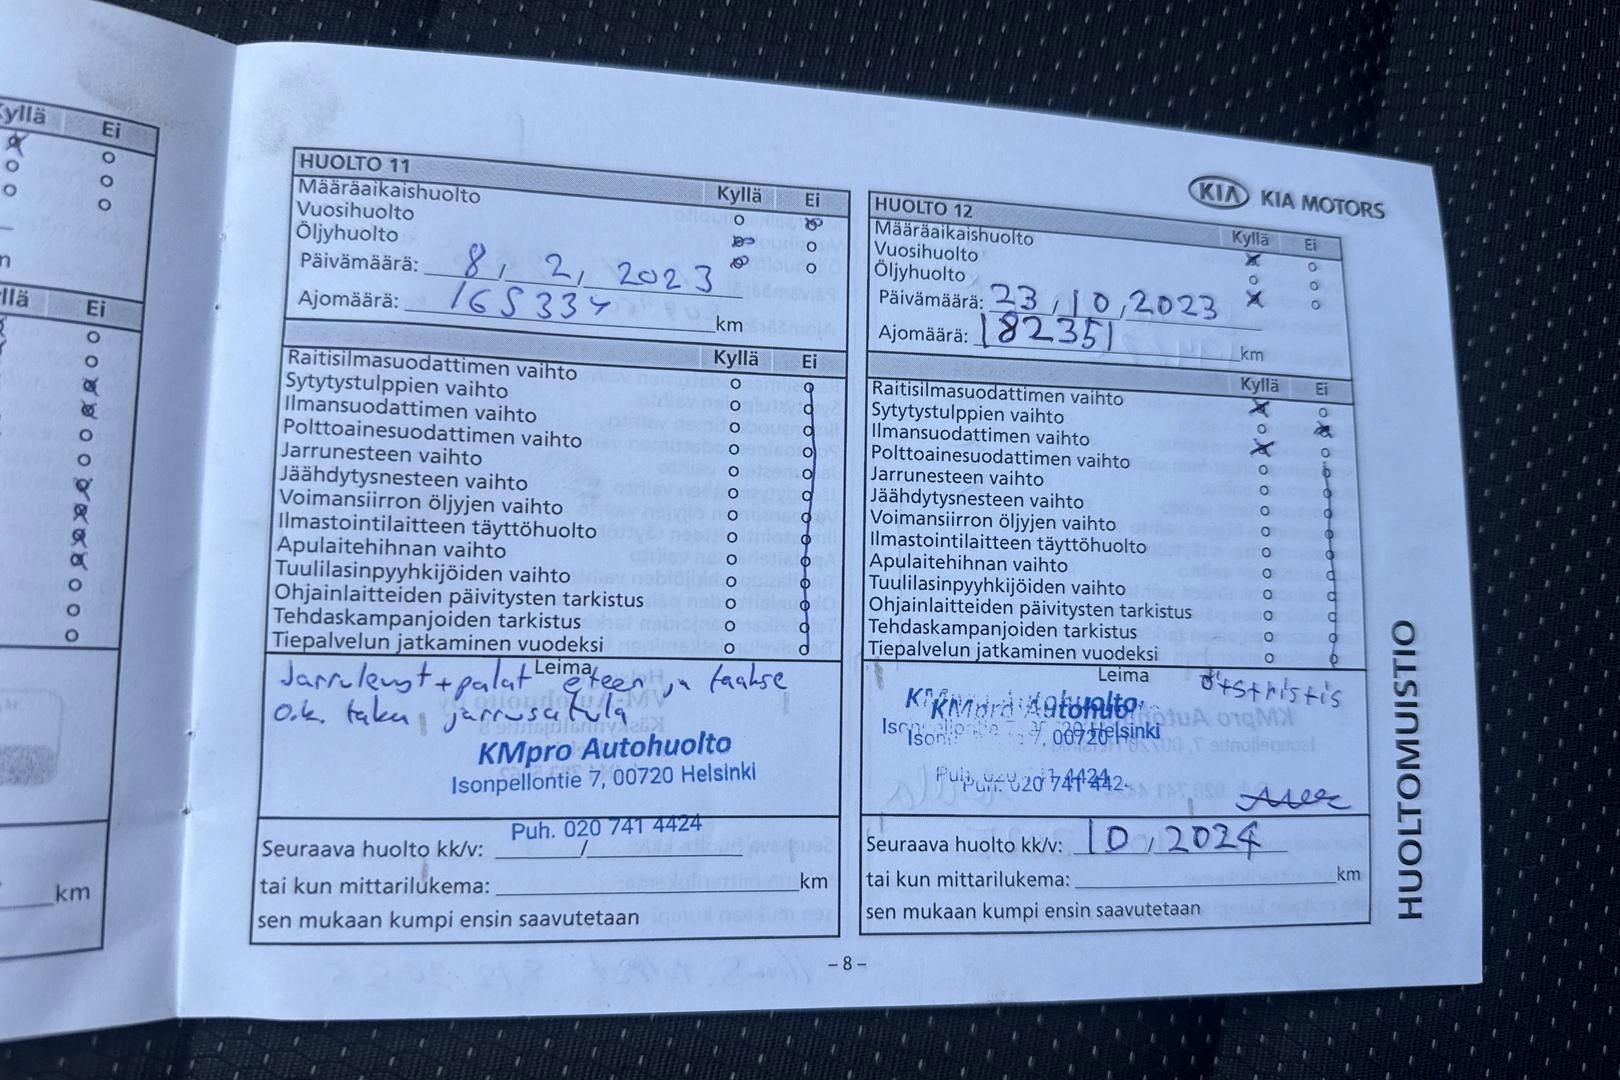 Kyllä Ei
n
llä Ei
km
HUOLTO 11
Kyllä Ei
Määräaikaishuolto
Vuosihuolto
Öljyhuolto
Päivämäärä: 8, 2, 2023
Ajomäärä: 165334 km
Kyllä Ei
Raitisilmasuodattimen vaihto
Sytytystulppien vaihto
Ilmansuodattimen vaihto
Polttoainesuodattimen vaihto
Jarrunesteen vaihto
Jäähdytysnesteen vaihto
Voimansiirron öljyjen vaihto
Ilmastointilaitteen täyttöhuolto
Apulaitehihnan vaihto
Tuulilasinpyyhkijöiden vaihto
Ohjainlaitteiden päivitysten tarkistus
Tehdaskampanjoiden tarkistus
Tiepalvelun jatkaminen vuodeksi
Leima
Jarrulevyt + palat eteen ja taakse
o.k. taka jarrusatula
KMpro Autohuolto
Isonpellontie 7, 00720 Helsinki
Puh. 020 741 4424
Seuraava huolto kk/v: /
tai kun mittarilukema: km
sen mukaan kumpi ensin saavutetaan
KIA KIA MOTORS
HUOLTO 12
Kyllä Ei
Määräaikaishuolto
Vuosihuolto
Öljyhuolto
Päivämäärä: 23, 10, 2023
Ajomäärä: 182351 km
Kyllä Ei
Raitisilmasuodattimen vaihto
Sytytystulppien vaihto
Ilmansuodattimen vaihto
Polttoainesuodattimen vaihto
Jarrunesteen vaihto
Jäähdytysnesteen vaihto
Voimansiirron öljyjen vaihto
Ilmastointilaitteen täyttöhuolto
Apulaitehihnan vaihto
Tuulilasinpyyhkijöiden vaihto
Ohjainlaitteiden päivitysten tarkistus
Tehdaskampanjoiden tarkistus
Tiepalvelun jatkaminen vuodeksi
Leima
KMpro Autohuolto
00720 Helsinki
Puh. 020 741 442
Seuraava huolto kk/v: 10, 2024
tai kun mittarilukema: km
sen mukaan kumpi ensin saavutetaan
HUOLTOMUISTIO
- 8 -